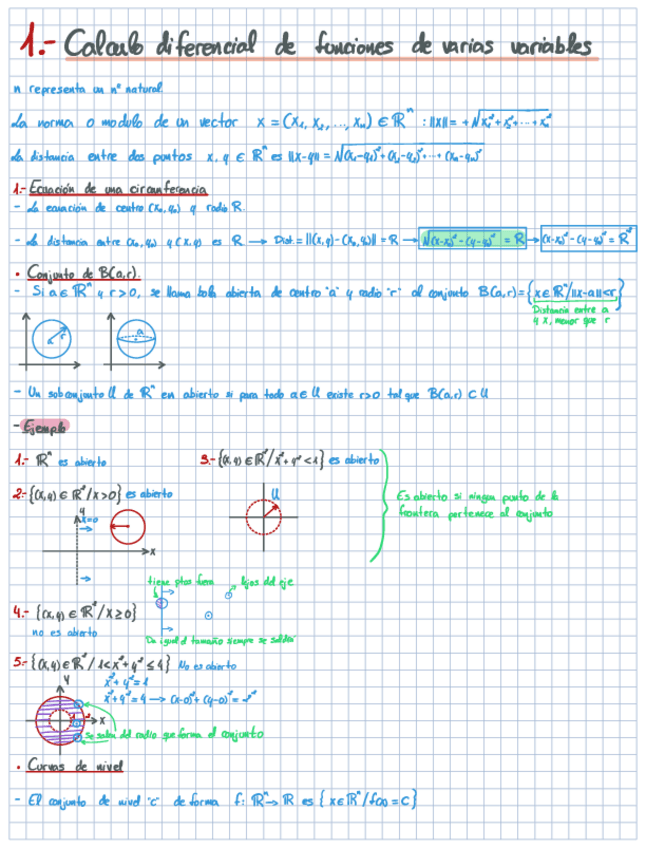 1.- Calculo diferencial de funciones de varias variables
n representa un nº natural
La norma o modulo de un vector x = (x₁, x₂, ..., xₙ) ∈ ℝⁿ : ||x|| = +√x₁²+x₂²+...+xₙ²
La distancia entre dos puntos x, y ∈ ℝⁿ es ||x-y|| = √(x₁-y₁)²+(x₂-y₂)²+...+(xₙ-yₙ)²
1.- Ecuación de una circunferencia
- La ecuación de centro (x₀, y₀) y radio R.
- La distancia entre (x₀, y₀) y (x, y) es R → Dist. = ||(x, y) - (x₀, y₀)|| = R → √(x-x₀)² - (y-y₀)² = R → (x-x₀)² - (y-y₀)² = R²
• Conjunto de B(a,r).
- Si a ∈ ℝⁿ y r>0, se llama bola abierta de centro "a" y radio "r" al conjunto B(a,r) = {x ∈ ℝⁿ/||x-a||<r}
Distancia entre a
y x, menor que r
a r
a
- Un subconjunto U de ℝⁿ en abierto si para todo a ∈ U existe r>0 tal que B(a,r) ⊂ U
- Ejemplo
1.- ℝⁿ es abierto
3.- {(x, y) ∈ ℝ²/x²+y²<1} es abierto
2.- {(x, y) ∈ ℝ²/x>0} es abierto
U
Es abierto si ningun punto de la
frontera pertenece al conjunto
y
x=0
x
tiene ptos fuera
lejos del eje
4.- {(x, y) ∈ ℝ²/x≥0}
no es abierto
Da igual el tamaño siempre se saldrá
5.- {(x, y) ∈ ℝ²/1<x²+y²≤4} No es abierto
y
x²+y²=1
x²+y²=4 → (x-0)²+(y-0)²=2²
1 2
x
se salen del radio que forma el conjunto
• Curvas de nivel
- El conjunto de nivel "c" de forma f: ℝⁿ→ℝ es {x∈ℝⁿ/f(x)=c}